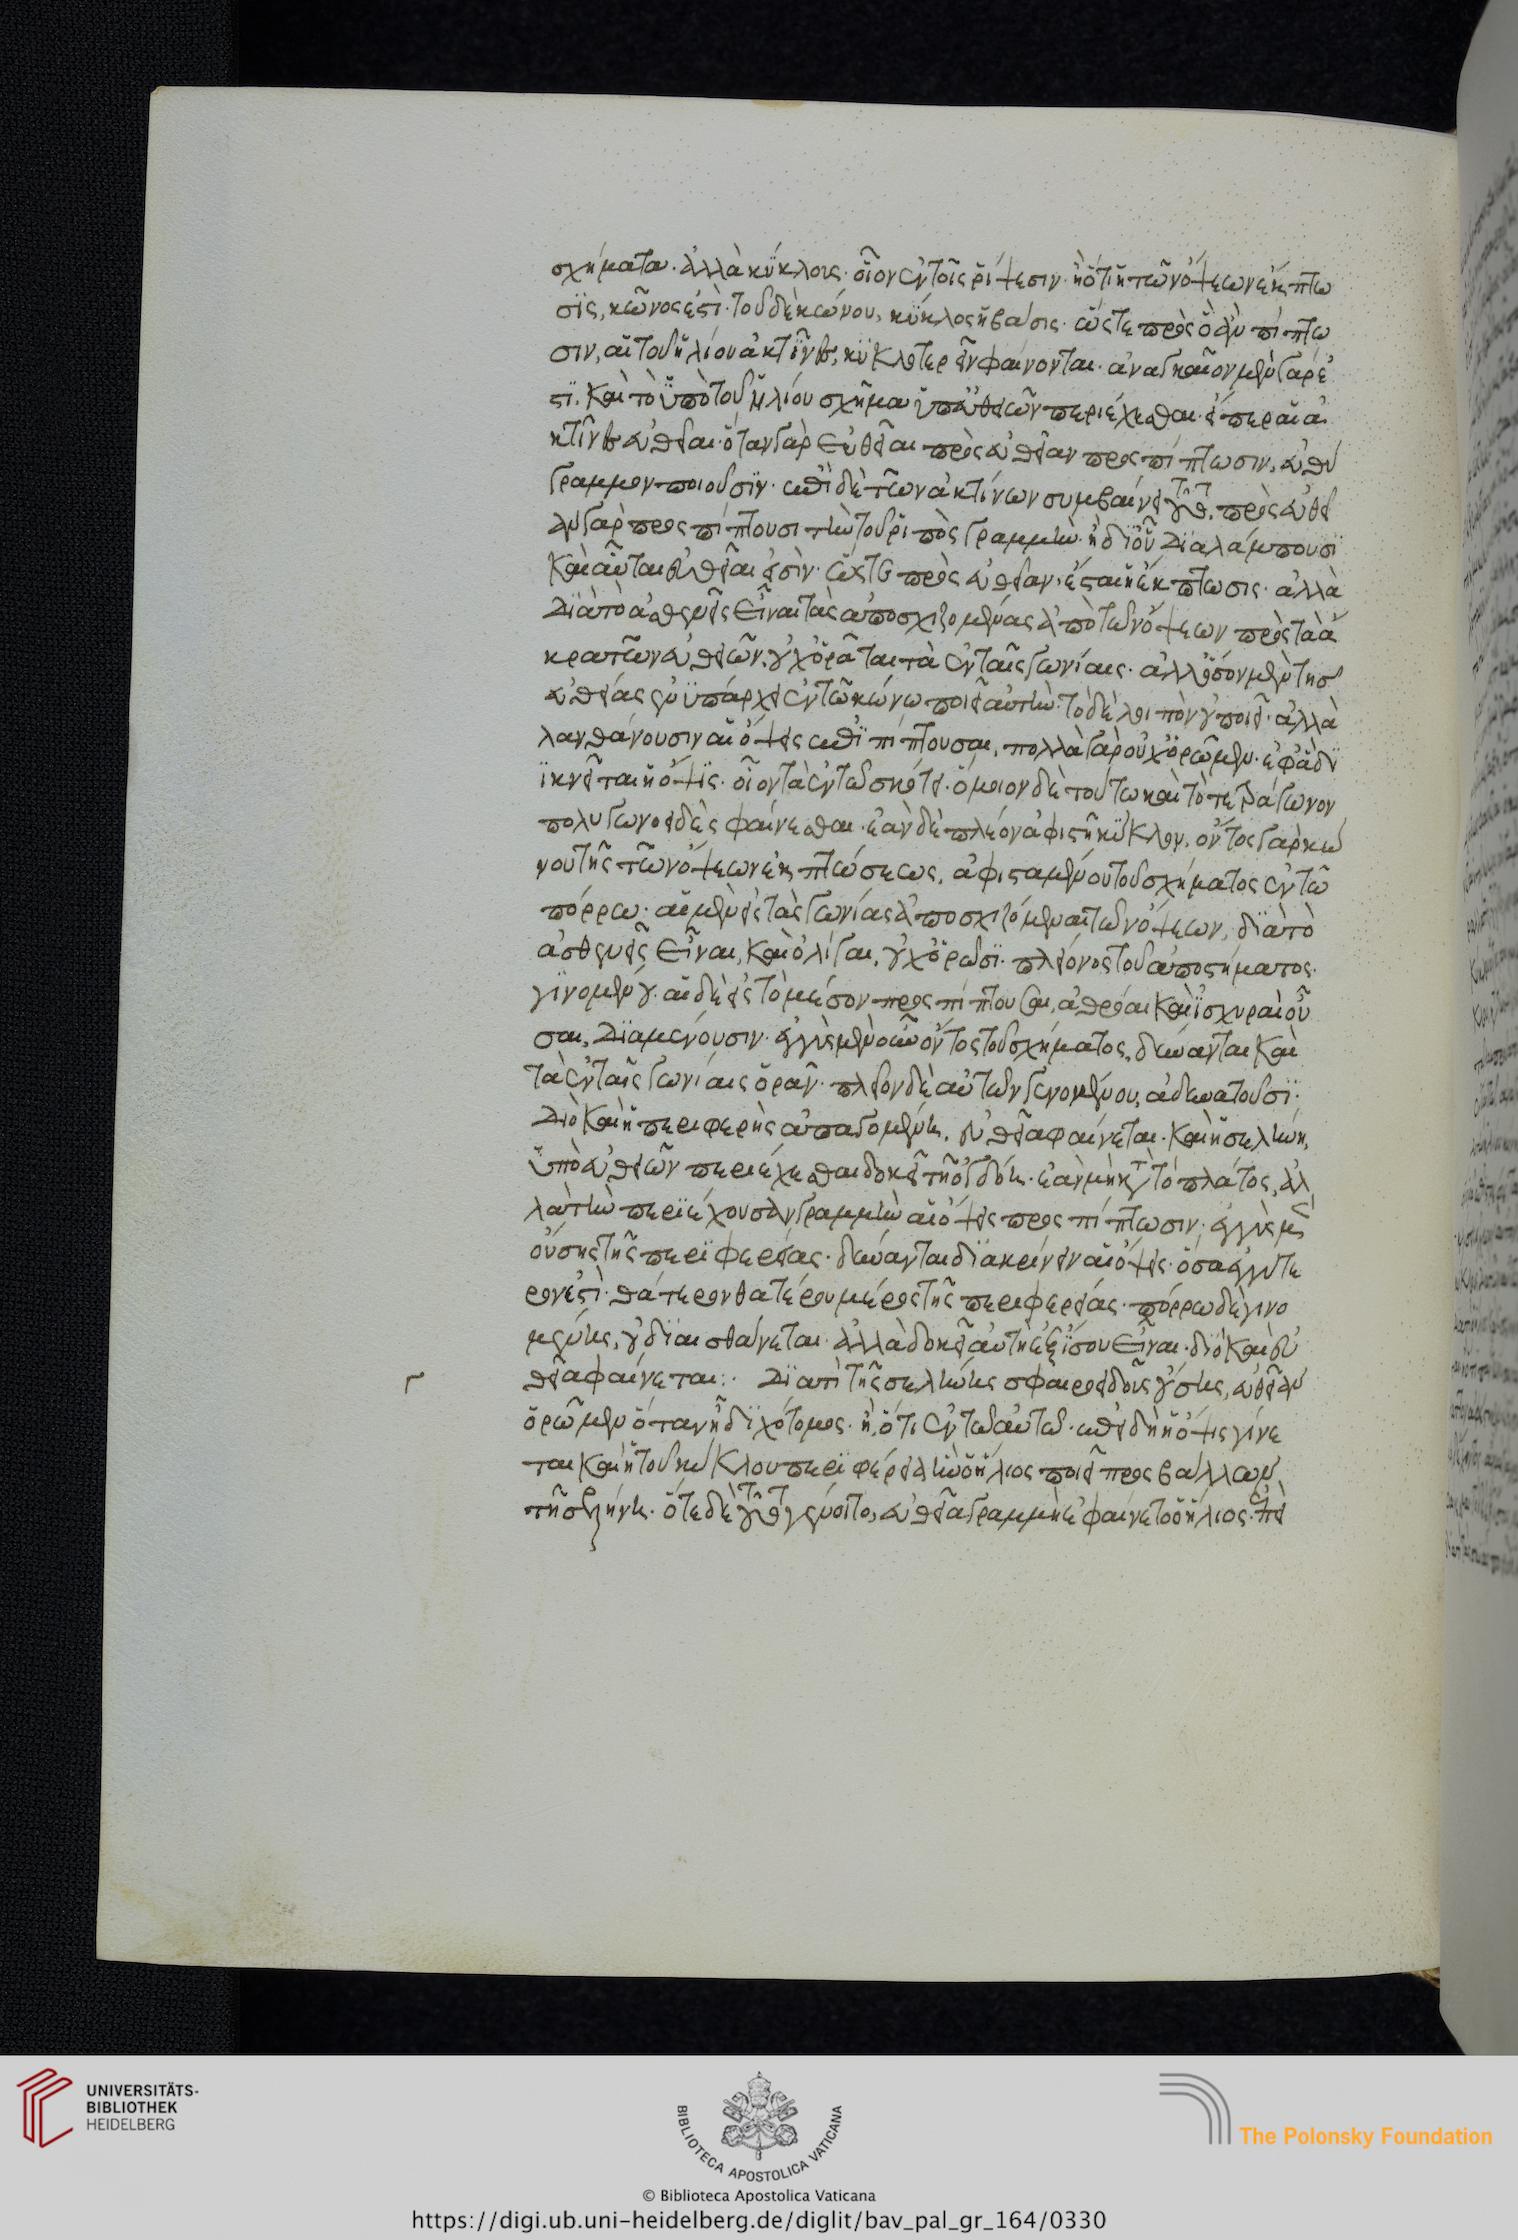 σχήματα· ἀλλὰ κύκλους· οἷον ἐν τοῖς ῥίψεσιν· ἢ ὅτι ἡ τῶν ὄψεων ἔκπτω
σις, κῶνος ἐστὶ· τοῦ δὲ κώνου, κύκλος ἡ βάσις· ὥστε πρὸς ὃ ἂν πίπτω
σιν, αἱ τοῦ ἡλίου ἀκτῖνες, κυκλοτερεῖν φαίνονται· ἀναγκαῖον μὲν γάρ ἐ
στι. καὶ τὸ ὑπὸ τοῦ ἡλίου σχῆμα ὑπ' εὐθειῶν περιέχεσθαι· εἴπερ αἱ ἀ
κτῖνες εὐθεῖαι· ὅταν γὰρ εὐθεῖαι πρὸς εὐθεῖαν προσπίπτωσιν, εὐθύ
γραμμον ποιοῦσιν· ἐπὶ δὲ τῶν ἀκτίνων συμβαίνει τοῦτο. πρὸς εὐθεῖ
αν γὰρ προσπίπτουσι τὴν τοῦ ῥιπὸς γραμμὴν· ἢ δι' οὗ διαλάμπουσι
καὶ αὗται εὐθεῖαι εἰσὶν· ὥστε πρὸς εὐθεῖαν· ἔσται ἡ ἔκπτωσις· ἀλλὰ
διὰ τὸ ἀσθενεῖς εἶναι τὰς ἀποσχιζομένας ἀπὸ τῶν ὄψεων πρὸς τὰ ἄ
κρα τῶν εὐθειῶν, οὐχ ὁρᾶται τὰ ἐν ταῖς γωνίαις· ἀλλ' ὅσον μὲν τῆς
εὐθείας ἐνυπάρχει ἐν τῷ κώνῳ ποιεῖ αὐτὴν· τὸ δὲ λοιπὸν οὐ ποιεῖ· ἀλλὰ
λανθάνουσιν αἱ ὄψεις ἐπιπίπτουσαι, πολλὰ γὰρ οὐχ ὁρῶμεν· ἐφ' ἃ δι
ϊκνεῖται ἡ ὄψις· οἷον τὰ ἐν τῷ σκότει· ὅμοιον δὲ τούτῳ καὶ τὸ τετράγωνον
πολυγωνοειδὲς φαίνεσθαι· ἐὰν δὲ πλέον ἀφιστῇ κύκλον. ὄντος γὰρ κώ
νου τῆς τῶν ὄψεων ἐκπτώσεως, ἀφισταμένου τοῦ σχήματος ἐν τῷ
πόρρω· αἱ μὲν εἰς τὰς γωνίας ἀποσχιζόμεναι τῶν ὄψεων, διὰ τὸ
ἀσθενεῖς εἶναι, καὶ ὀλίγαι, οὐχ ὁρῶσι· πλείονος τοῦ ἀποστήματος·
γινομένου. αἱ δὲ εἰς τὸ μέσον προσπίπτουσαι, ἀθρόαι καὶ ἰσχυραὶ οὖ
σαι, διαμένουσιν· ἐγγὺς μὲν οὖν ὄντος τοῦ σχήματος, δύνανται καὶ
τὰ ἐν ταῖς γωνίαις ὁρᾶν· πλεῖον δὲ αὐτῶν γενομένου, ἀδυνατοῦσι·
διὸ καὶ ἡ περιφερὴς ἀπαγομένη, εὐθεῖα φαίνεται· καὶ ἡ σελήνη,
ὑπὸ εὐθειῶν περιέχεσθαι δοκεῖ τῇ ὀγδόῃ· ἐὰν μὴ κατὰ τὸ πλάτος, ἀλ
λὰ τὴν περιέχουσαν γραμμὴν αἱ ὄψεις προσπίπτωσιν, ἐγγὺς μὲν
οὔσης τῆς περιφερείας· δύνανται διακρίνειν αἱ ὄψεις· ὅσα ἐγγύτε
ρόν ἐστὶ· θάτερον θατέρου μέρος τῆς περιφερείας· πόρρω δὲ γινο
μένης, οὐ διαισθάνεται· ἀλλὰ δοκεῖ αὐτῇ ἐξίσου εἶναι· διὸ καὶ εὐ
θεῖα φαίνεται:· Διατί τῆς σελήνης σφαιροειδοῦς οὔσης, εὐθεῖαν
ὁρῶμεν ὅταν ᾖ διχότομος· ἢ, ὅτι ἐν τῷ αὐτῷ· ἐπειδὴ ἡ ὄψις γίνε
ται καὶ ἡ τοῦ κύκλου περιφέρεια ἣν ὁ ἥλιος ποιεῖ προσβάλλων
τῇ σελήνῃ. ὅτε δὲ τοῦτο γένοιτο, εὐθεῖα γραμμὴ ἐφαίνετο ὁ ἥλιος· ἐπεὶ
Γ
UNIVERSITÄTS-
BIBLIOTHEK
HEIDELBERG
BIBLIOTECA APOSTOLICA VATICANA
© Biblioteca Apostolica Vaticana
The Polonsky Foundation
https://digi.ub.uni-heidelberg.de/diglit/bav_pal_gr_164/0330